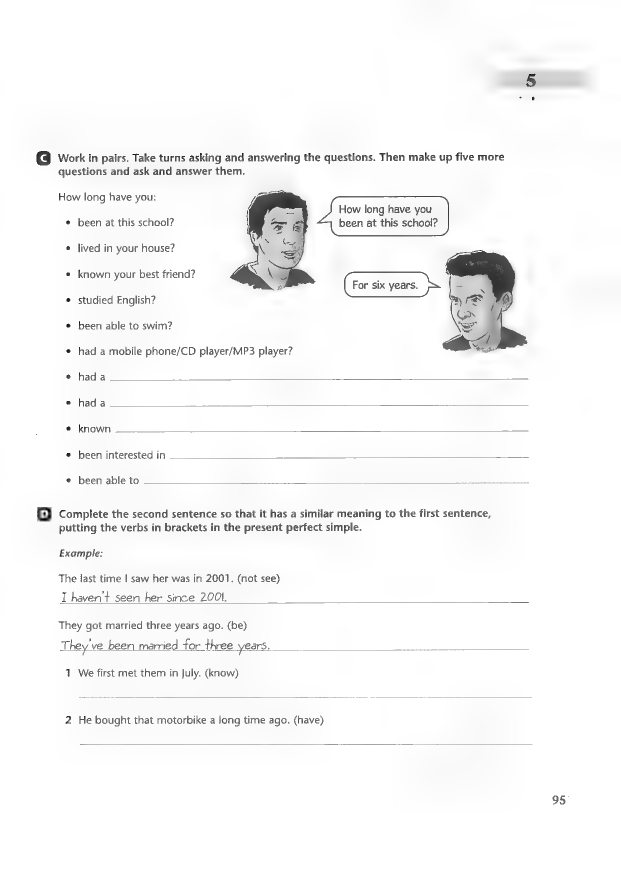 5
C Work in pairs. Take turns asking and answering the questions. Then make up five more
questions and ask and answer them.
How long have you:
• been at this school?
• lived in your house?
• known your best friend?
• studied English?
• been able to swim?
• had a mobile phone/CD player/MP3 player?
• had a
• had a
• known
• been interested in
• been able to
How long have you
been at this school?
For six years.
D Complete the second sentence so that it has a similar meaning to the first sentence,
putting the verbs in brackets in the present perfect simple.
Example:
The last time I saw her was in 2001. (not see)
I haven't seen her since 2001.
They got married three years ago. (be)
They've been married for three years.
1 We first met them in July. (know)
2 He bought that motorbike a long time ago. (have)
95